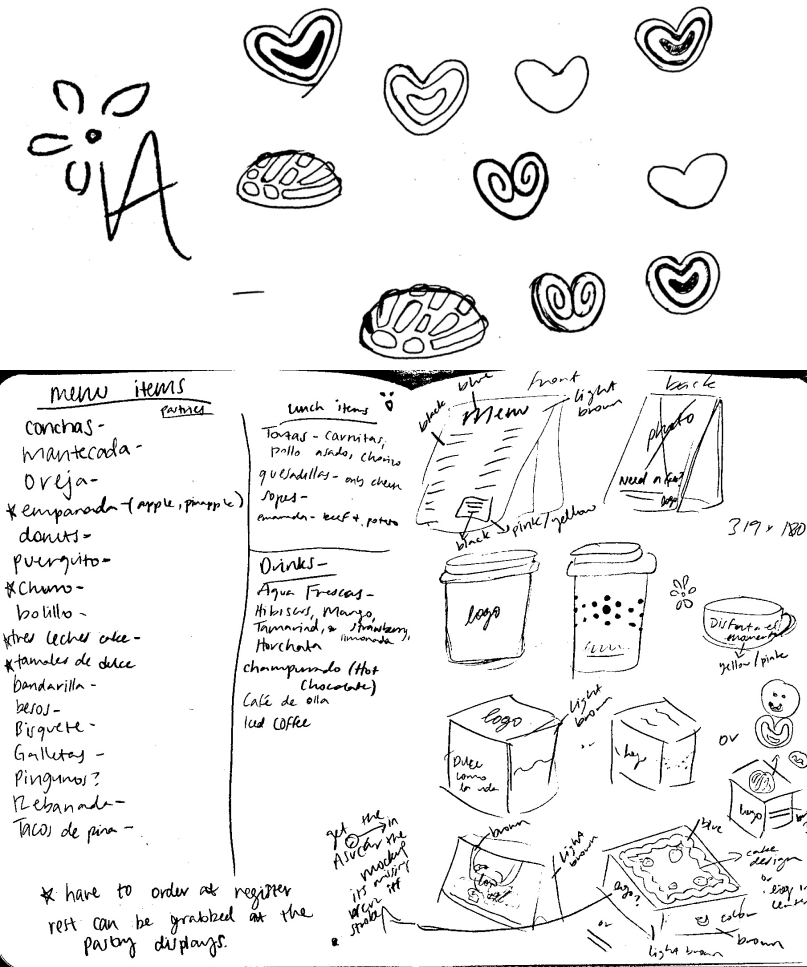 menu items
pastries
conchas-
mantecada-
oreja-
*empanada-(apple, pinapple)
donuts-
puerquito-
*Churro-
bolillo-
*tres leches cake-
*tamales de dulce
bandarilla-
besos-
Bisquete-
Galletas-
Pinguinos?
Rebanada-
Tacos de pina-
* have to order at register
rest can be grabbed at the
pastry displays.
Lunch items
Tortas- Carnitas,
pollo asados, chorizo
quesadillas- only cheese
sopes-
beef + potato
Drinks-
Agua Frescas-
Hibiscus, Mango,
Tamarind, strawberry,
Horchata limonada
champurrado (Hot
Chocolate)
Café de olla
Iced coffee
get the
A in
ASUCAR the
mockup
its missing
stroke
front
blue
black
Menu
light
brown
black
pink/yellow
back
photo
Need a
logo
319 x 180
logo
Disfruta el
momento
yellow/pink
logo
light
brown
Dulce
como
la vida
or
logo
or
logo
brown
light
brown
logo
blue
cake
design
or
logo in
center
logo?
or
color
brown
light brown